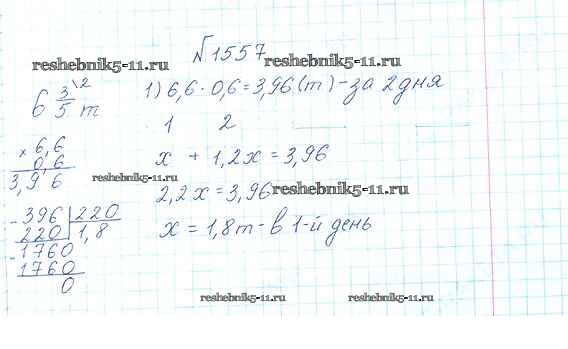 №1557
reshebnik5-11.ru reshebnik5-11.ru
6 3\2/5 т
1) 6,6 · 0,6 = 3,96 (т) - за 2 дня
1 2
× 6,6
0,6
3,9 6
x + 1,2x = 3,96
reshebnik5-11.ru
2,2x = 3,96 reshebnik5-11.ru
- 396 | 220
220 | 1,8
- 1760
1760
0
x = 1,8т - в 1-й день
reshebnik5-11.ru reshebnik5-11.ru